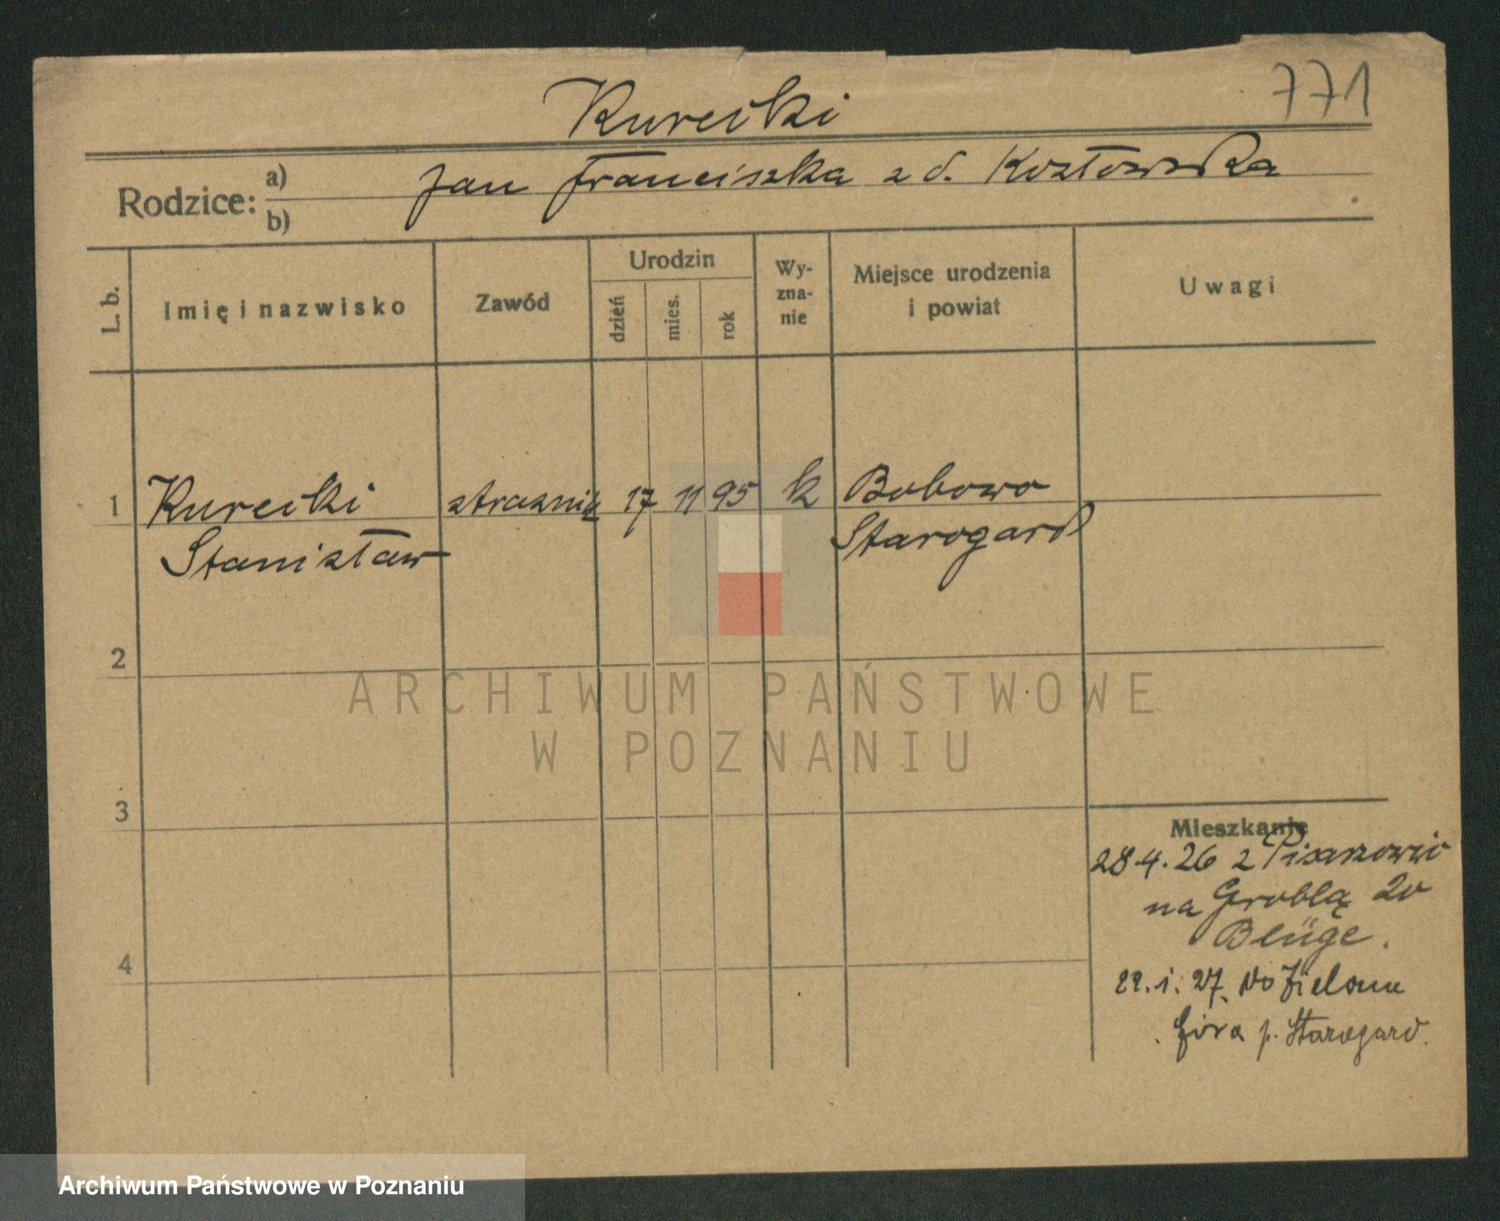 771
Kurecki
Rodzice: a) b)
Jan Franciszka z d. Kozłowska
L. b.
Imię i nazwisko
Zawód
Urodzin
dzień
mies.
rok
Wy-
zna-
nie
Miejsce urodzenia
i powiat
Uwagi
1
Kurecki strażnik 17 11 95 k Bobowo
Stanisław Starogard
2
ARCHIWUM PAŃSTWOWE
W POZNANIU
3
Mieszkanie
28.4.26 z
na Groblą 20
Blüge.
4
22.1.27. do Zielona
Góra p. Starogard.
Archiwum Państwowe w Poznaniu